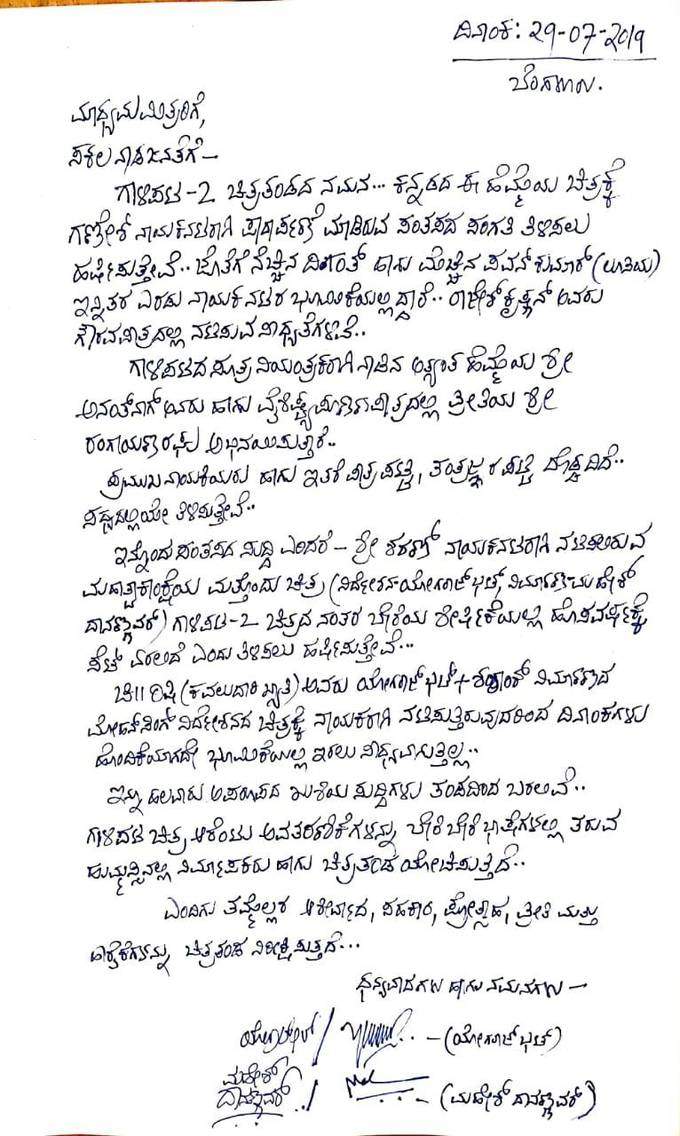 ದಿನಾಂಕ: 29-07-2019
ಬೆಂಗಳೂರು.
ಮಾಧ್ಯಮಮಿತ್ರರಿಗೆ,
ಸಕಲ ನಾಡಜನತೆಗೆ –
ಗಾಳಿಪಟ-2 ಚಿತ್ರತಂಡದ ನಮನ... ಕನ್ನಡದ ಈ ಹೆಮ್ಮೆಯ ಚಿತ್ರಕ್ಕೆ
ಗಣೇಶ್ ನಾಯಕನಟರಾಗಿ ಪಾದಾರ್ಪಣೆ ಮಾಡಿರುವ ಸಂತಸದ ಸಂಗತಿ ತಿಳಿಸಲು
ಹರ್ಷಿಸುತ್ತೇವೆ.. ಜೊತೆಗೆ ನೆಚ್ಚಿನ ದಿಗಂತ್ ಹಾಗು ಮೆಚ್ಚಿನ ಪವನ್ ಕುಮಾರ್ (ಲೂಸಿಯ)
ಇನ್ನಿತರ ಎರಡು ನಾಯಕನಟರ ಭೂಮಿಕೆಯಲ್ಲಿದ್ದಾರೆ.. ರಾಜೇಶ್ ಕೃಷ್ಣನ್ ಅವರು
ಗೌರವಪಾತ್ರದಲ್ಲಿ ನಟಿಸುವ ಸಾಧ್ಯತೆಗಳಿವೆ..
ಗಾಳಿಪಟದ ಸೂತ್ರ ನಿಯಂತ್ರಕರಾಗಿ ನಾಡಿನ ಅತ್ಯಂತ ಹೆಮ್ಮೆಯ ಶ್ರೀ
ಅನಂತ್‌ನಾಗ್ ಅವರು ಹಾಗು ವೈಶಿಷ್ಟ್ಯಪೂರ್ಣ ಪಾತ್ರದಲ್ಲಿ ಪ್ರೀತಿಯ ಶ್ರೀ
ರಂಗಾಯಣ ರಘು ಅಭಿನಯಿಸುತ್ತಾರೆ..
ಪ್ರಮುಖ ನಾಯಕಿಯರು ಹಾಗು ಇತರೆ ಪಾತ್ರ ಪಟ್ಟಿ, ತಂತ್ರಜ್ಞರ ಪಟ್ಟಿ ದೊಡ್ಡದಿದೆ..
ಸದ್ಯದಲ್ಲಿಯೇ ತಿಳಿಸುತ್ತೇವೆ..
ಇನ್ನೊಂದ ಸಂತಸದ ಸುದ್ದಿ ಎಂದರೆ – ಶ್ರೀ ಶರಣ್ ನಾಯಕನಟರಾಗಿ ನಟಿಸಲಿರುವ
ಮಹಾತ್ವಾಕಾಂಕ್ಷೆಯ ಮತ್ತೊಂದು ಚಿತ್ರ (ನಿರ್ದೇಶನ-ಯೋಗರಾಜ್ ಭಟ್, ನಿರ್ಮಾಣ-ಮಹೇಶ್
ದಾನಣ್ಣವರ್) ಗಾಳಿಪಟ-2 ಚಿತ್ರದ ನಂತರ ಬೇರೆಯ ಶೀರ್ಷಿಕೆಯಲ್ಲಿ ಹೊಸವರ್ಷಕ್ಕೆ
ಸೆಟ್ ಏರಲಿದೆ ಎಂದು ತಿಳಿಸಲು ಹರ್ಷಿಸುತ್ತೇವೆ...
ಚಿ|| ರಿಷಿ (ಕವಲುದಾರಿ ಖ್ಯಾತಿ) ಅವರು ಯೋಗರಾಜ್ ಭಟ್ + ಶಶಾಂಕ್ ನಿರ್ಮಾಣದ
ಮೋಹನ್‌ಸಿಂಗ್ ನಿರ್ದೇಶನದ ಚಿತ್ರಕ್ಕೆ ನಾಯಕರಾಗಿ ನಟಿಸುತ್ತಿರುವುದರಿಂದ ದಿನಾಂಕಗಳು
ಹೊಂದಿಕೆಯಾಗದೇ ಭೂಮಿಕೆಯಲ್ಲಿ ಇರಲು ಸಾಧ್ಯವಾಗುತ್ತಿಲ್ಲ..
ಇನ್ನು ಹಲವಾರು ಅಪರೂಪದ ಖುಶಿಯ ಸುದ್ದಿಗಳು ತಂಡದಿಂದ ಬರಲಿವೆ..
ಗಾಳಿಪಟ ಚಿತ್ರ ಆರೆಂಟು ಅವತರಣಿಕೆಗಳನ್ನು ಬೇರೆ ಬೇರೆ ಭಾಷೆಗಳಲ್ಲಿ ತರುವ
ಹುಮ್ಮಸ್ಸಿನಲ್ಲಿ ನಿರ್ಮಾಪಕರು ಹಾಗು ಚಿತ್ರತಂಡ ಯೋಚಿಸುತ್ತಿದೆ..
ಎಂದಿಗು ತಮ್ಮೆಲ್ಲರ ಆಶೀರ್ವಾದ, ಸಹಕಾರ, ಪ್ರೋತ್ಸಾಹ, ಪ್ರೀತಿ ಮತ್ತು
ಹಾರೈಕೆಗಳನ್ನು ಚಿತ್ರತಂಡ ನಿರೀಕ್ಷಿಸುತ್ತದೆ...
ಧನ್ಯವಾದಗಳು ಹಾಗು ನಮನಗಳು –
ಯೋಗರಾಜ್ ಭಟ್ / – (ಯೋಗರಾಜ್ ಭಟ್)
ಮಹೇಶ್
ದಾನಣ್ಣವರ್ / – (ಮಹೇಶ್ ದಾನಣ್ಣವರ್)